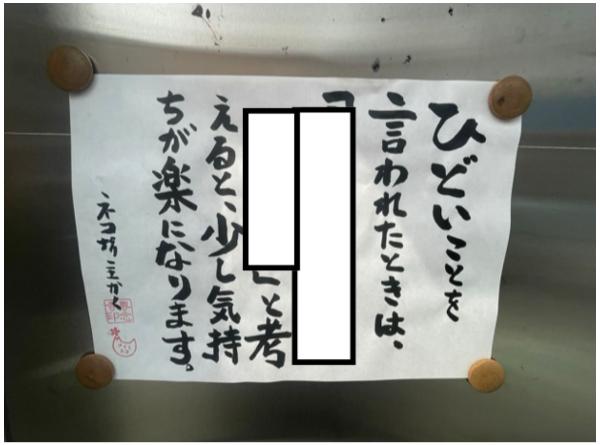 ひどいことを
言われたときは、
「
」と考
えると、少し気持
ちが楽になります。
ネコ坊主かく